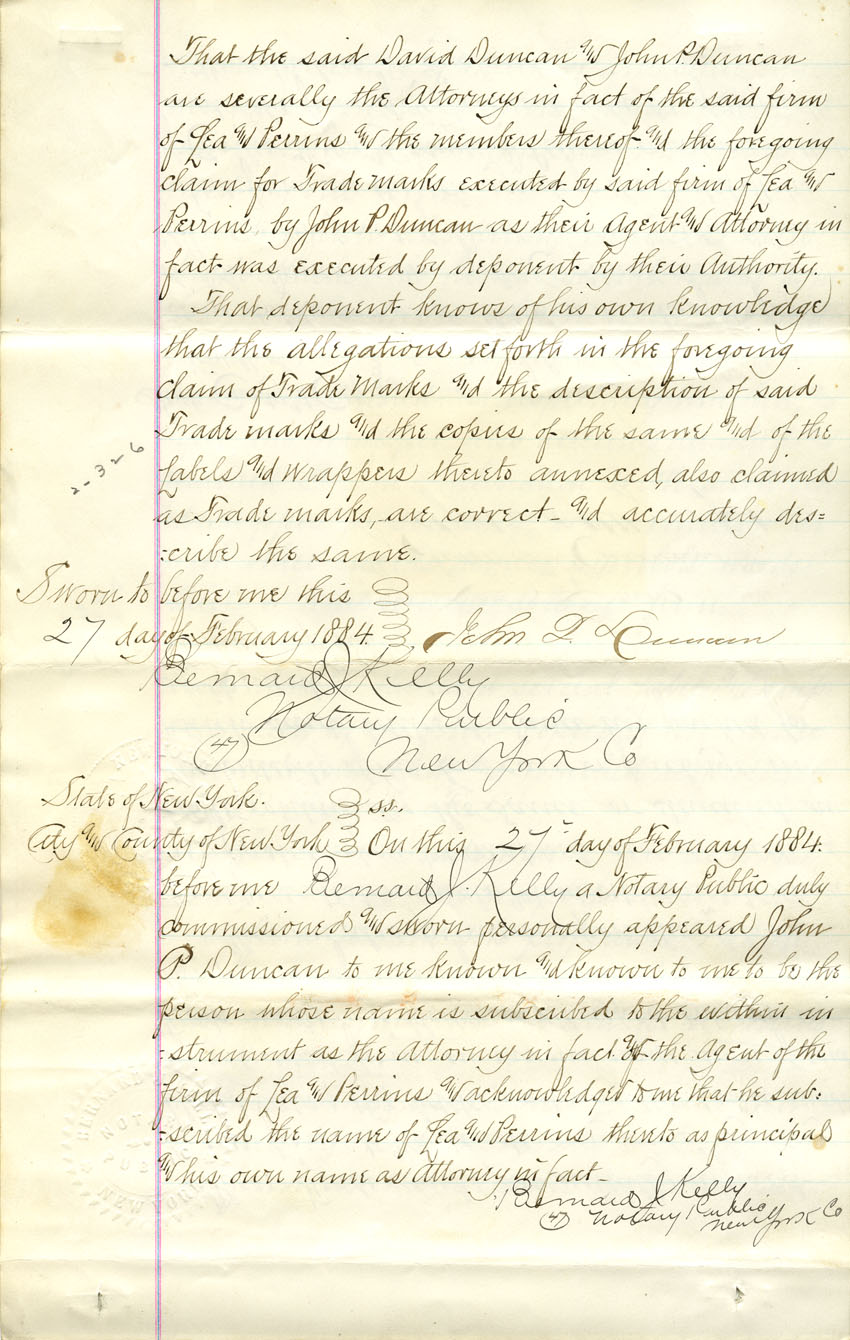 That the said David Duncan and John P. Duncan
are severally the Attorneys in fact of the said firm
of Lea and Perrins and the members thereof and the foregoing
claim for Trade marks executed by said firm of Lea and
Perrins, by John P. Duncan as their Agent and Attorney in
fact was executed by deponent by their Authority.
That deponent knows of his own knowledge
that the allegations set forth in the foregoing
claim of Trade Marks and the description of said
Trade marks and the copies of the same and of the
labels and wrappers thereto annexed, also claimed
as Trade marks, are correct and accurately des=
=cribe the same.
2-326
Sworn to before me this
27 day of February 1884.
John P. Duncan
Bernard J Kelly
Notary Public
(47) New York Co
State of New York.
City and County of New York ss.
On this 27 day of February 1884.
before me Bernard J. Kelly a Notary Public duly
commissioned and sworn personally appeared John
P. Duncan to me known and known to me to be the
person whose name is subscribed to the within in
=strument as the Attorney in fact of the Agent of the
firm of Lea and Perrins and acknowledged to me that he sub=
=scribed the name of Lea and Perrins thereto as principal
and his own name as Attorney in fact
Bernard J Kelly
(47) Notary Public
New York Co